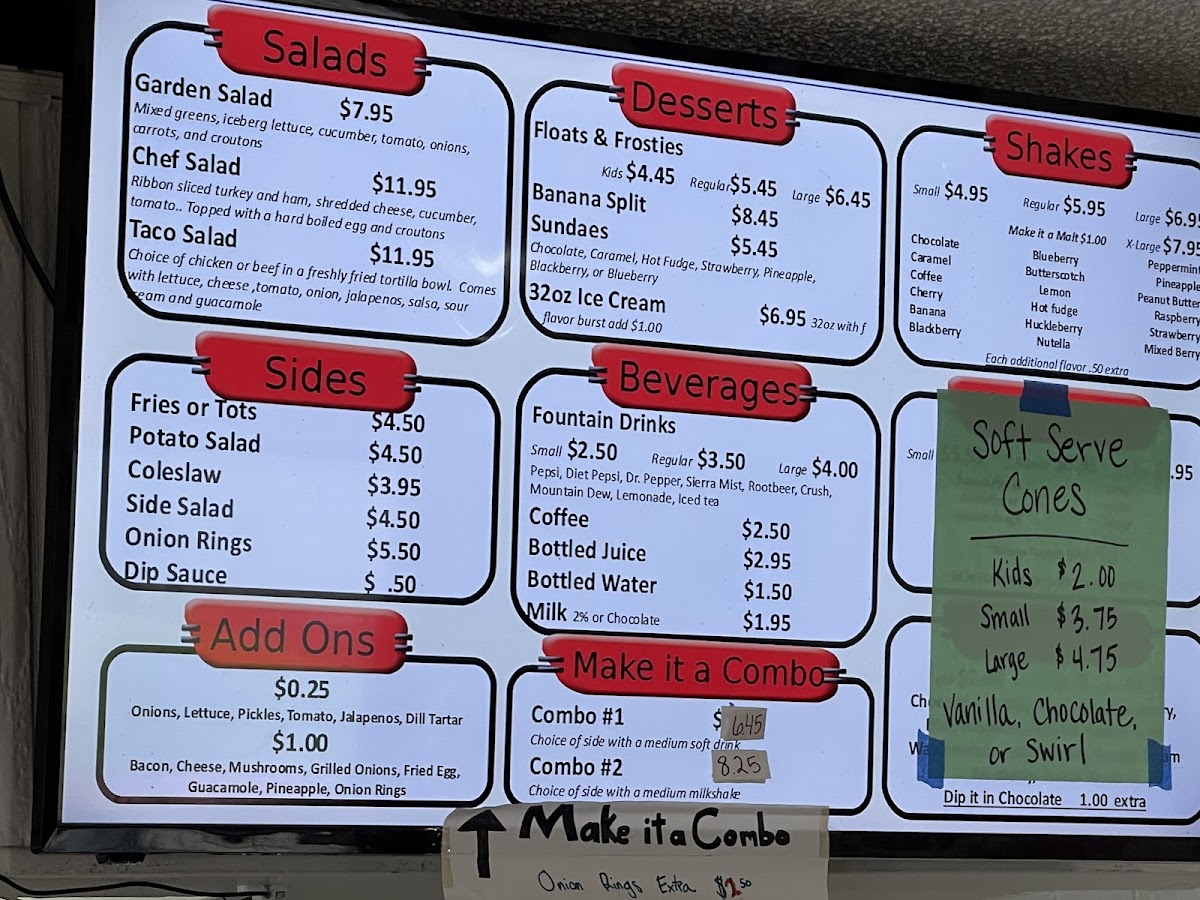 Salads
Garden Salad $7.95
Mixed greens, iceberg lettuce, cucumber, tomato, onions,
carrots, and croutons
Chef Salad $11.95
Ribbon sliced turkey and ham, shredded cheese, cucumber,
tomato.. Topped with a hard boiled egg and croutons
Taco Salad $11.95
Choice of chicken or beef in a freshly fried tortilla bowl. Comes
with lettuce, cheese ,tomato, onion, jalapenos, salsa, sour
cream and guacamole
Sides
Fries or Tots $4.50
Potato Salad $4.50
Coleslaw $3.95
Side Salad $4.50
Onion Rings $5.50
Dip Sauce $ .50
Add Ons
$0.25
Onions, Lettuce, Pickles, Tomato, Jalapenos, Dill Tartar
$1.00
Bacon, Cheese, Mushrooms, Grilled Onions, Fried Egg,
Guacamole, Pineapple, Onion Rings
Desserts
Floats & Frosties
Kids $4.45 Regular $5.45 Large $6.45
Banana Split $8.45
Sundaes $5.45
Chocolate, Caramel, Hot Fudge, Strawberry, Pineapple,
Blackberry, or Blueberry
32oz Ice Cream $6.95 32oz with f
flavor burst add $1.00
Beverages
Fountain Drinks
Small $2.50 Regular $3.50 Large $4.00
Pepsi, Diet Pepsi, Dr. Pepper, Sierra Mist, Rootbeer, Crush,
Mountain Dew, Lemonade, Iced tea
Coffee $2.50
Bottled Juice $2.95
Bottled Water $1.50
Milk 2% or Chocolate $1.95
Make it a Combo
Combo #1 $ 6.45
Choice of side with a medium soft drink
Combo #2 8.25
Choice of side with a medium milkshake
Make it a Combo
Onion Rings Extra
Shakes
Small $4.95 Regular $5.95 Large $6.95
Make it a Malt $1.00 X-Large $7.95
Chocolate Blueberry Peppermin
Caramel Butterscotch Pineapple
Coffee Lemon Peanut Butter
Cherry Hot fudge Raspberry
Banana Huckleberry Strawberry
Blackberry Nutella Mixed Berry
Each additional flavor .50 extra
Small .95
Soft Serve
Cones
Kids $2.00
Small $3.75
Large $4.75
Vanilla, Chocolate,
or Swirl
Dip it in Chocolate 1.00 extra